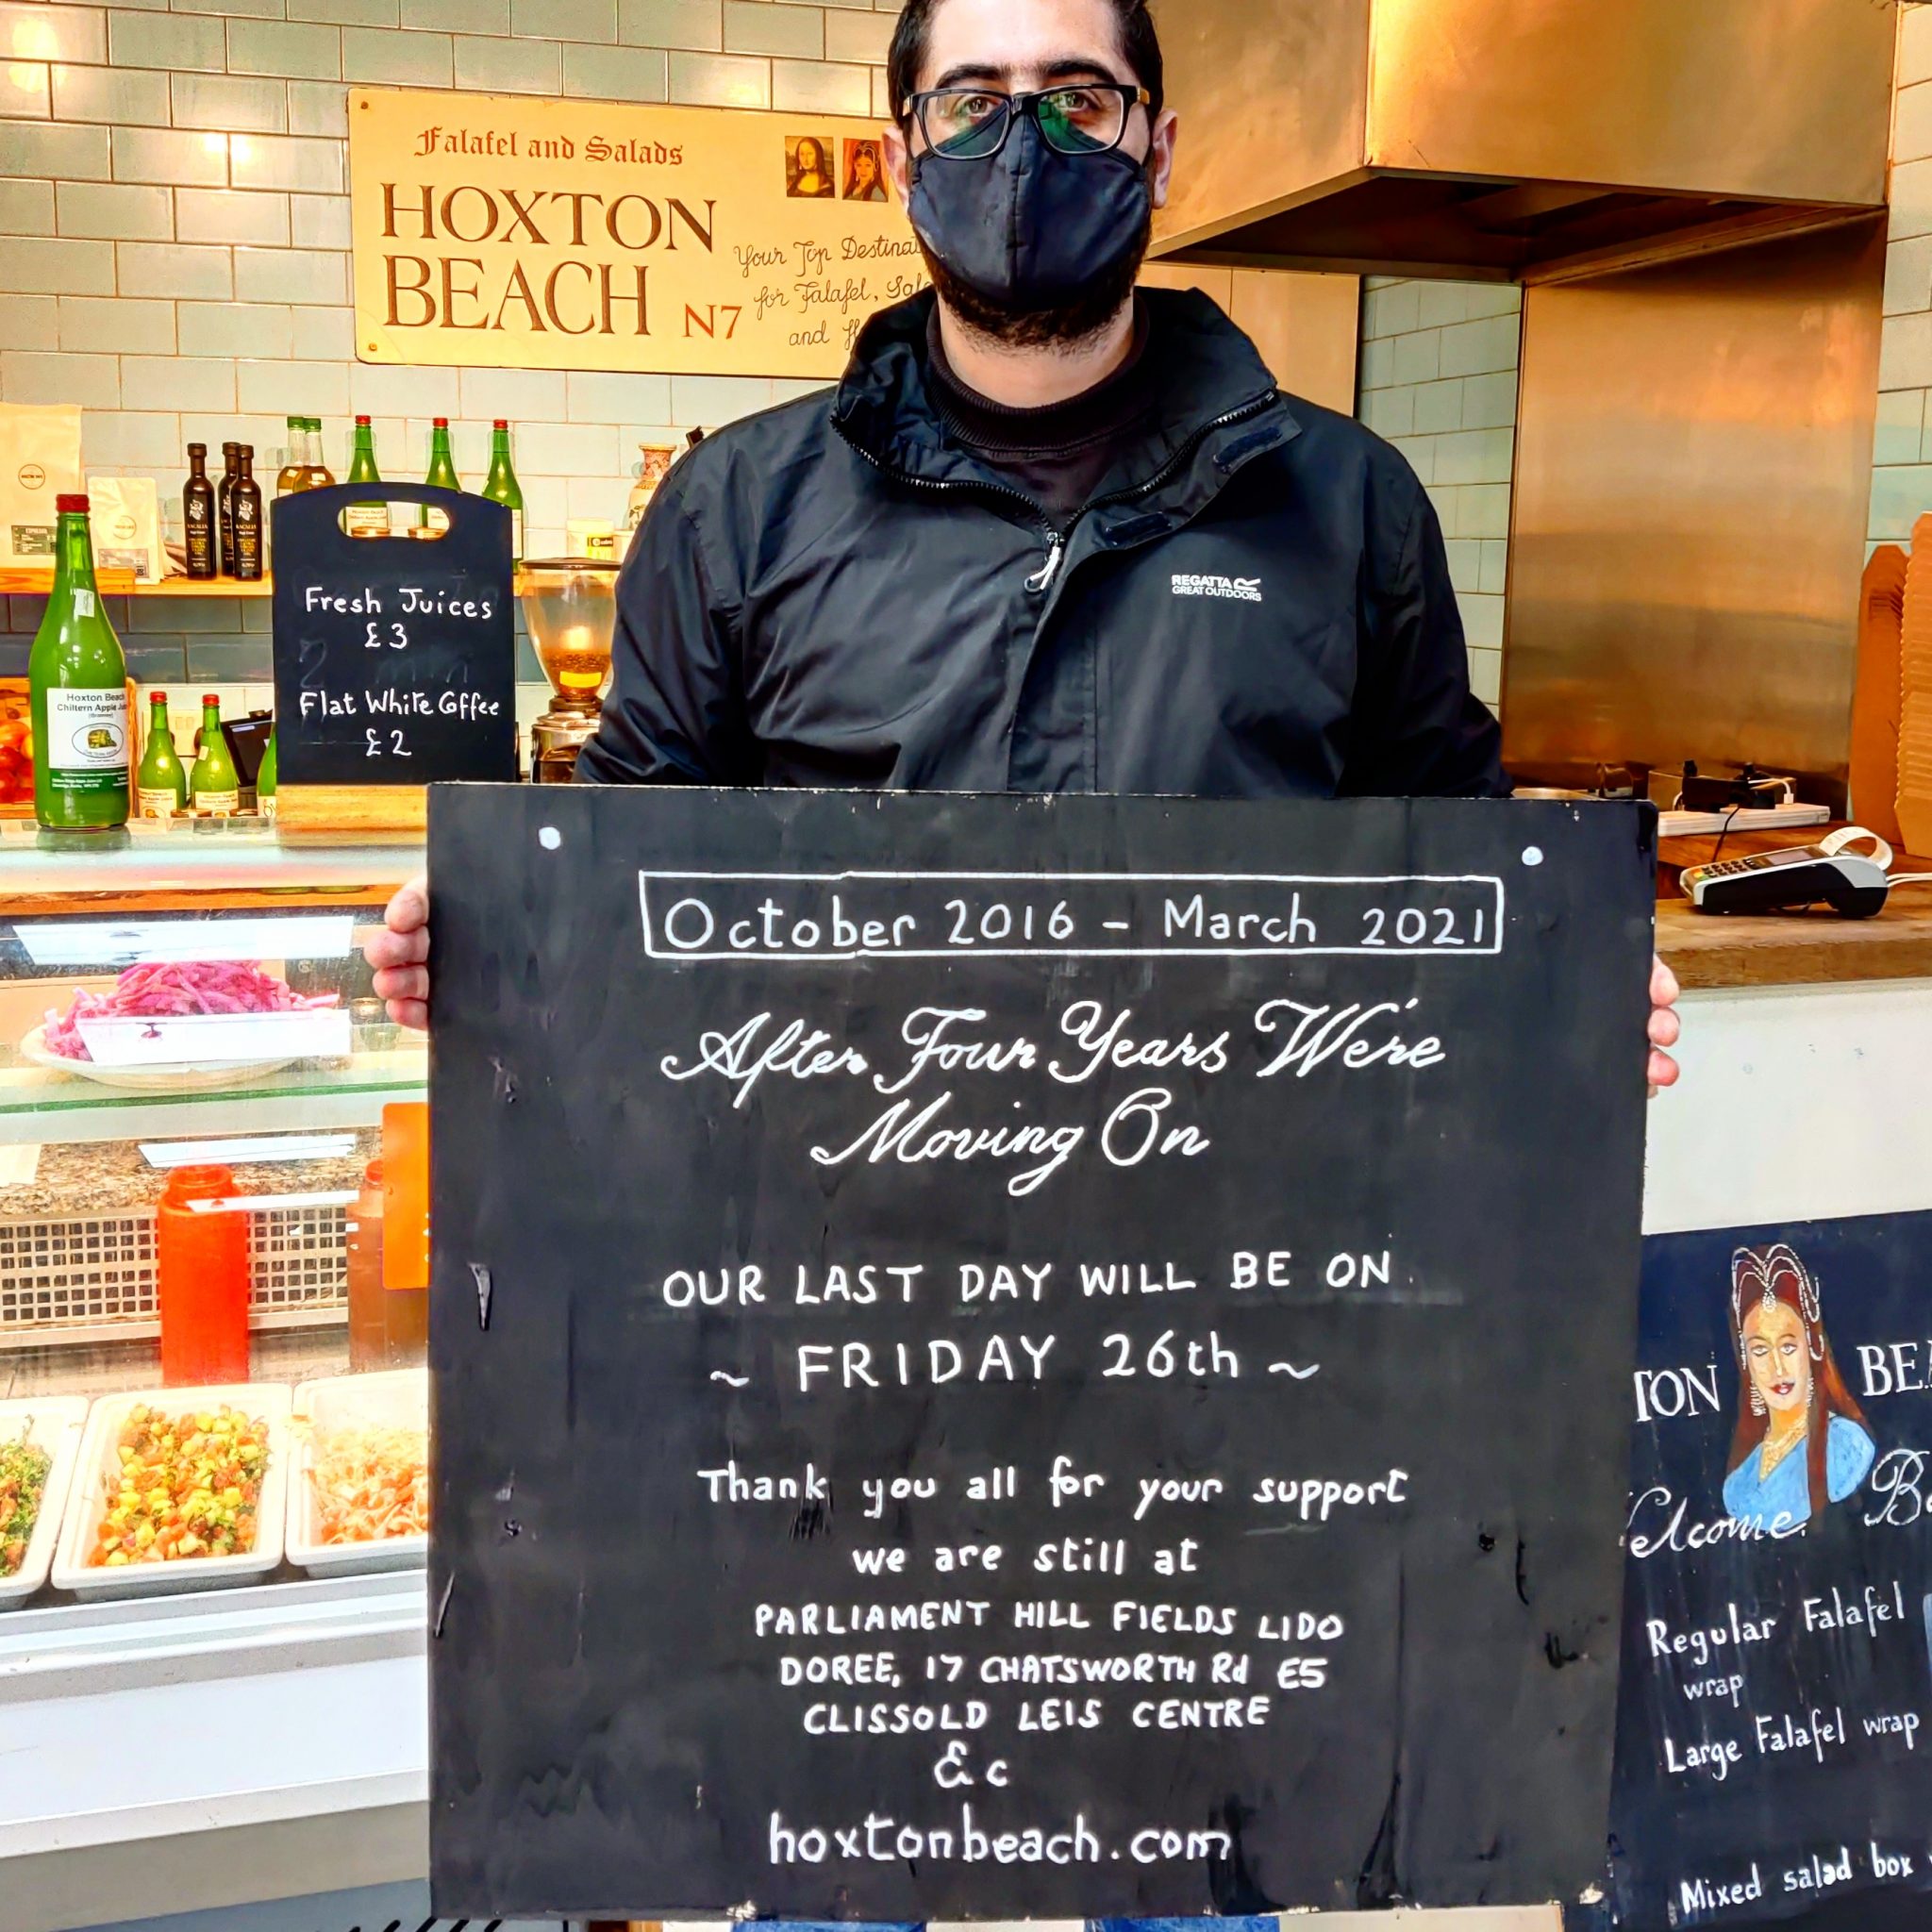 Falafel and Salads
HOXTON
BEACH N7
Your Top
for Falafel,
and
Fresh Juices
£3
Flat White Coffee
£2
Hoxton Beach
Chiltern Apple
REGATTA
GREAT OUTDOORS
October 2016 - March 2021
After Four Years We're
Moving On
OUR LAST DAY WILL BE ON
~ FRIDAY 26th ~
Thank you all for your support
we are still at
PARLIAMENT HILL FIELDS LIDO
DOREE, 17 CHATSWORTH Rd E5
CLISSOLD LEIS CENTRE
&c
hoxtonbeach.com
Regular Falafel
wrap
Large Falafel wrap
Mixed salad box